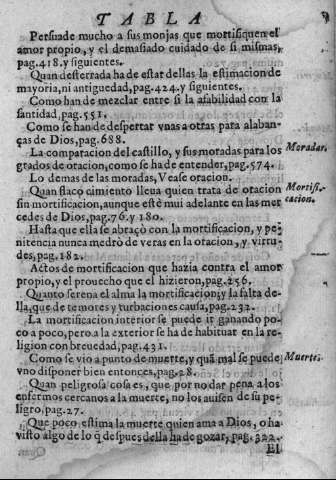 TABLA
Persuade mucho a sus monjas que mortifiquen el
amor propio, y el demasiado cuidado de si mismas,
pag.418.y siguientes.
Quan desterrada ha de estar dellas la estimacion de
mayoria, ni antiguedad, pag.424.y siguientes.
Como han de mezclar entre si la afabilidad con la
santidad, pag.551.
Como se han de despertar vnas a otras para alaban-
ças de Dios, pag.688.
La comparacion del castillo, y sus moradas para los
grados de oracion, como se ha de entender, pag.574.
Moradas.
Lo demas de las moradas, Vease oracion.
Quan flaco cimiento lleua quien trata de oracion
Mortifi-
sin mortificacion, aunque estè mui adelante en las mer
cacion.
cedes de Dios, pag.76.y 180.
Hasta que ella se abraçò con la mortificacion, y pe-
nitencia nunca medrò de veras en la oracion, y virtu-
des, pag.182.
Actos de mortificacion que hazia contra el amor
propio, y el prouecho que el hizieron, pag.256.
Quanto serena el alma la mortificacion; y la falta de-
lla, que de temores y turbaciones causa, pag.232.
La mortificacion interior se puede ir ganando po-
co a poco, pero a la exterior se ha de habituar en la re-
ligion con breuedad, pag.431.
Como se vio a punto de muerte, y quã mal se puede
Muerte.
vno disponer bien entonces, pag.28.
Quan peligrosa cosa es, que por no dar pena a los
enfermos cercanos a la muerte, no los auisen de su pe-
ligro, pag.27.
Que poco estima la muerte quien ama a Dios, o ha
visto algo de lo q̃ despues della ha de gozar, pag.322.
El